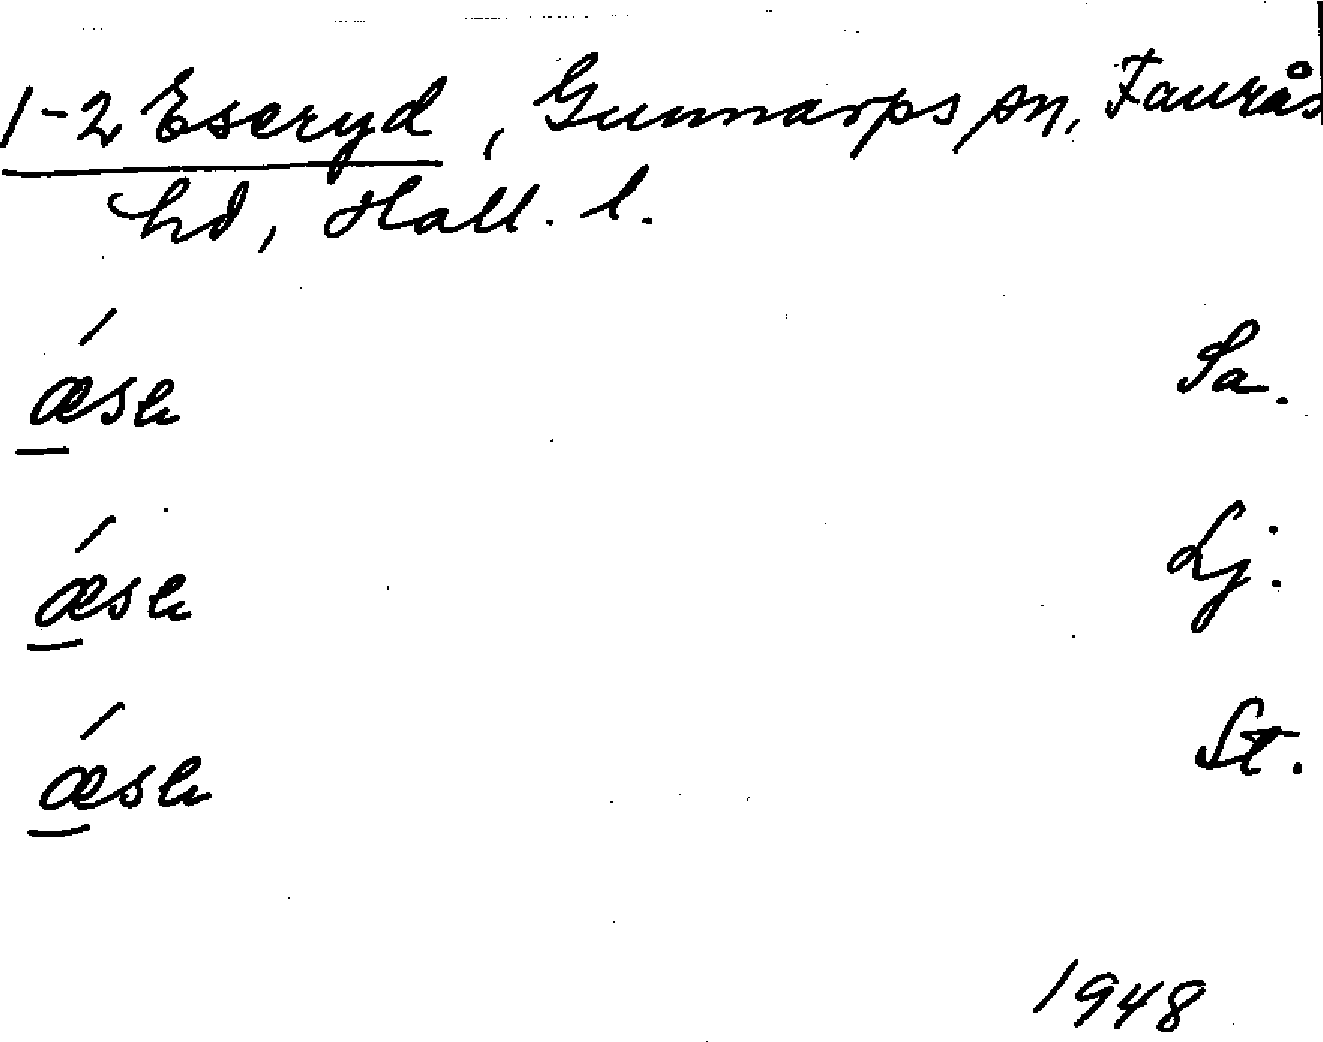 1-2 Eseryd, Gunnarps sn, Faurås
hd, Hall. l.
ǽse Sa.
ǽse Lj.
ǽse St.
1948